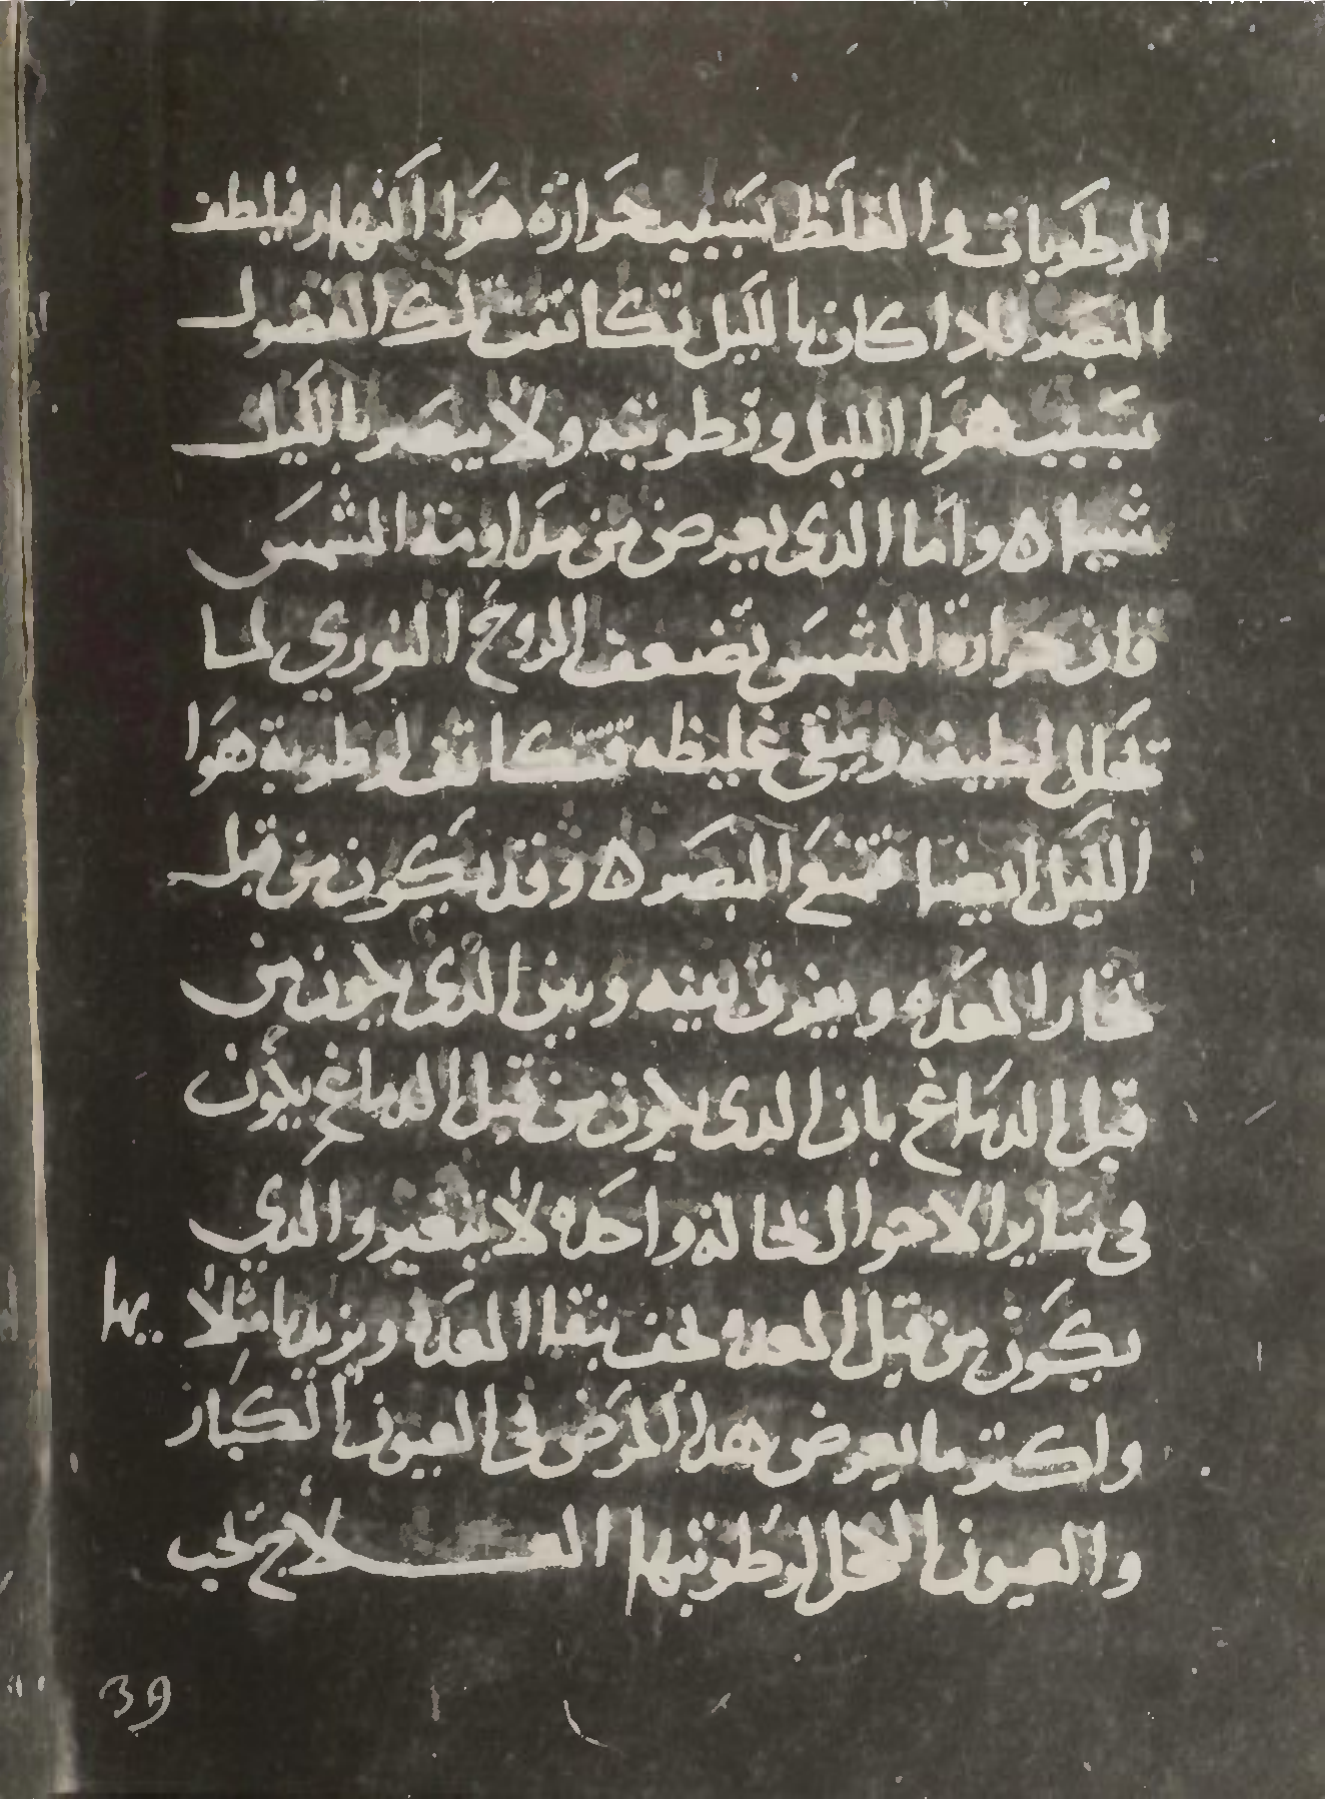 الرطوبات والغلظ بسبب حرارة هوا النهار فيلطف
البصر فادا كان بالليل تكاثفت تلك الفضول
بسبب هوا الليل ورطوبته ولا يبصر بالليل
شيا ه واما الدى يعرض من مداومة الشمس
فان حرارة الشمس تضعف الروح النوري لما
تحلل لطيفه ويبقى غليظه فتتكاثف لرطوبة هوا
الليل ايضا فتمنع البصر ه وقد يكون من قبل
بخار المعده ويفرق بينه وبين الدى يكون من
قبل الدماغ بان الدى يكون من قبل الدماغ يكون
فى ساير الاحوال بحالة واحده لا يتغير والدي
يكون من قبل المعده يخف بنقا المعدة ويزيد بامتلا
يها
واكثر ما يعرض هدا المرض فى العيون الكبار
والعيون الكحل لرطوبتها العلاج تجب
39